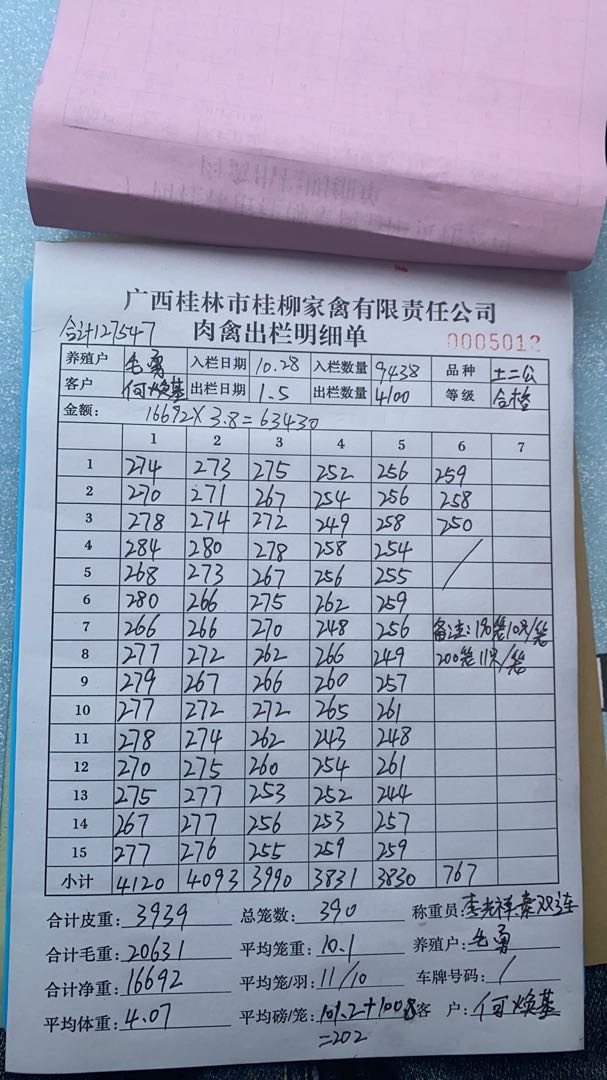 广西桂林市桂柳家禽有限责任公司
合计127547 肉禽出栏明细单 0005012
养殖户 毛勇 入栏日期 10.28 入栏数量 9438 品种 土二公
客户 何焕基 出栏日期 1.5 出栏数量 4100 等级 合格
金额: 16692×3.8=63430
1 2 3 4 5 6 7
1 274 273 275 252 256 259
2 270 271 267 254 256 258
3 278 274 272 249 258 250
4 284 280 278 258 254 /
5 268 273 267 256 255
6 280 266 275 262 259
7 266 266 270 248 256 备注:190笼10只/笼
8 277 272 262 266 249 200笼11只/笼
9 279 267 266 260 257
10 277 272 272 265 261
11 278 274 262 243 248
12 270 275 260 254 261
13 275 277 253 252 244
14 267 277 256 253 257
15 277 276 255 259 259
小计 4120 4093 3990 3831 3830 767
合计皮重: 3939 总笼数: 390 称重员: 李光祥
合计毛重: 20631 平均笼重: 10.1 养殖户: 毛勇
合计净重: 16692 平均笼/羽: 11/10 车牌号码: /
平均体重: 4.07 平均磅/笼: 101.2+100.8 客户: 何焕基
=202